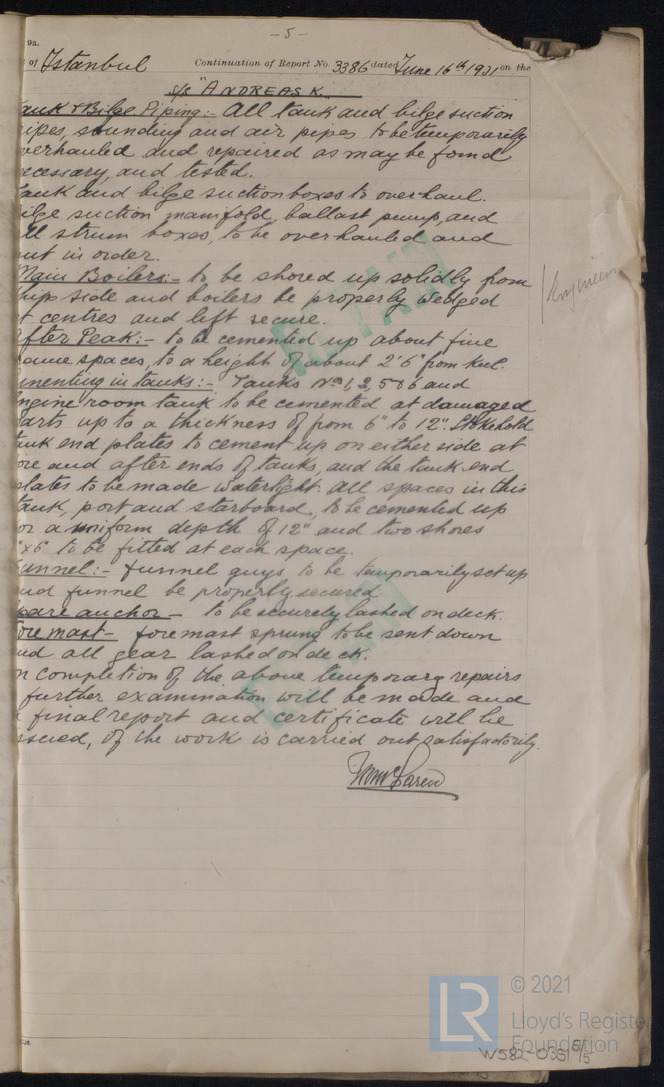 - 5 -
9a.
of Istanbul Continuation of Report No. 3386 dated June 16th 1931 on the
s/s "ANDREAS K.
ank & Bilge Piping:- All tank and bilge suction
ipes, sounding and air pipes to be temporarily
verhauled and repaired as may be found
ecessary, and tested.
ank and bilge suction boxes to overhaul.
ilge suction manifold, ballast pump, and
ll strum boxes, to be overhauled and
ut in order.
Main Boilers:- to be shored up solidly from
hip side and boilers be properly wedged
t centres and left secure.
fter Peak:- to be cemented up about five
rame spaces, to a height of about 2'6" from keel.
ementing in tanks:- Tanks Nos 1, 2, 5 & 6 and
ngine room tank to be cemented at damaged
arts up to a thickness of from 6" to 12". Stokehold
ank end plates to cement up on either side at
ore and after ends of tanks, and the tank end
lates to be made watertight. All spaces in this
ank, port and starboard, to be cemented up
or a uniform depth of 12" and two shores
"x6" to be fitted at each space.
unnel:- funnel guys to be temporarily set up
nd funnel be properly secured
pare anchor - to be securely lashed on deck.
ore mast - foremast sprung to be sent down
nd all gear lashed on deck.
n completion of the above temporary repairs
further examination will be made and
final report and certificate will be
ssued, if the work is carried out satisfactorily.
Engineer
© 2021
LR
Lloyd's Register
Foundation
W582-0351 5/5